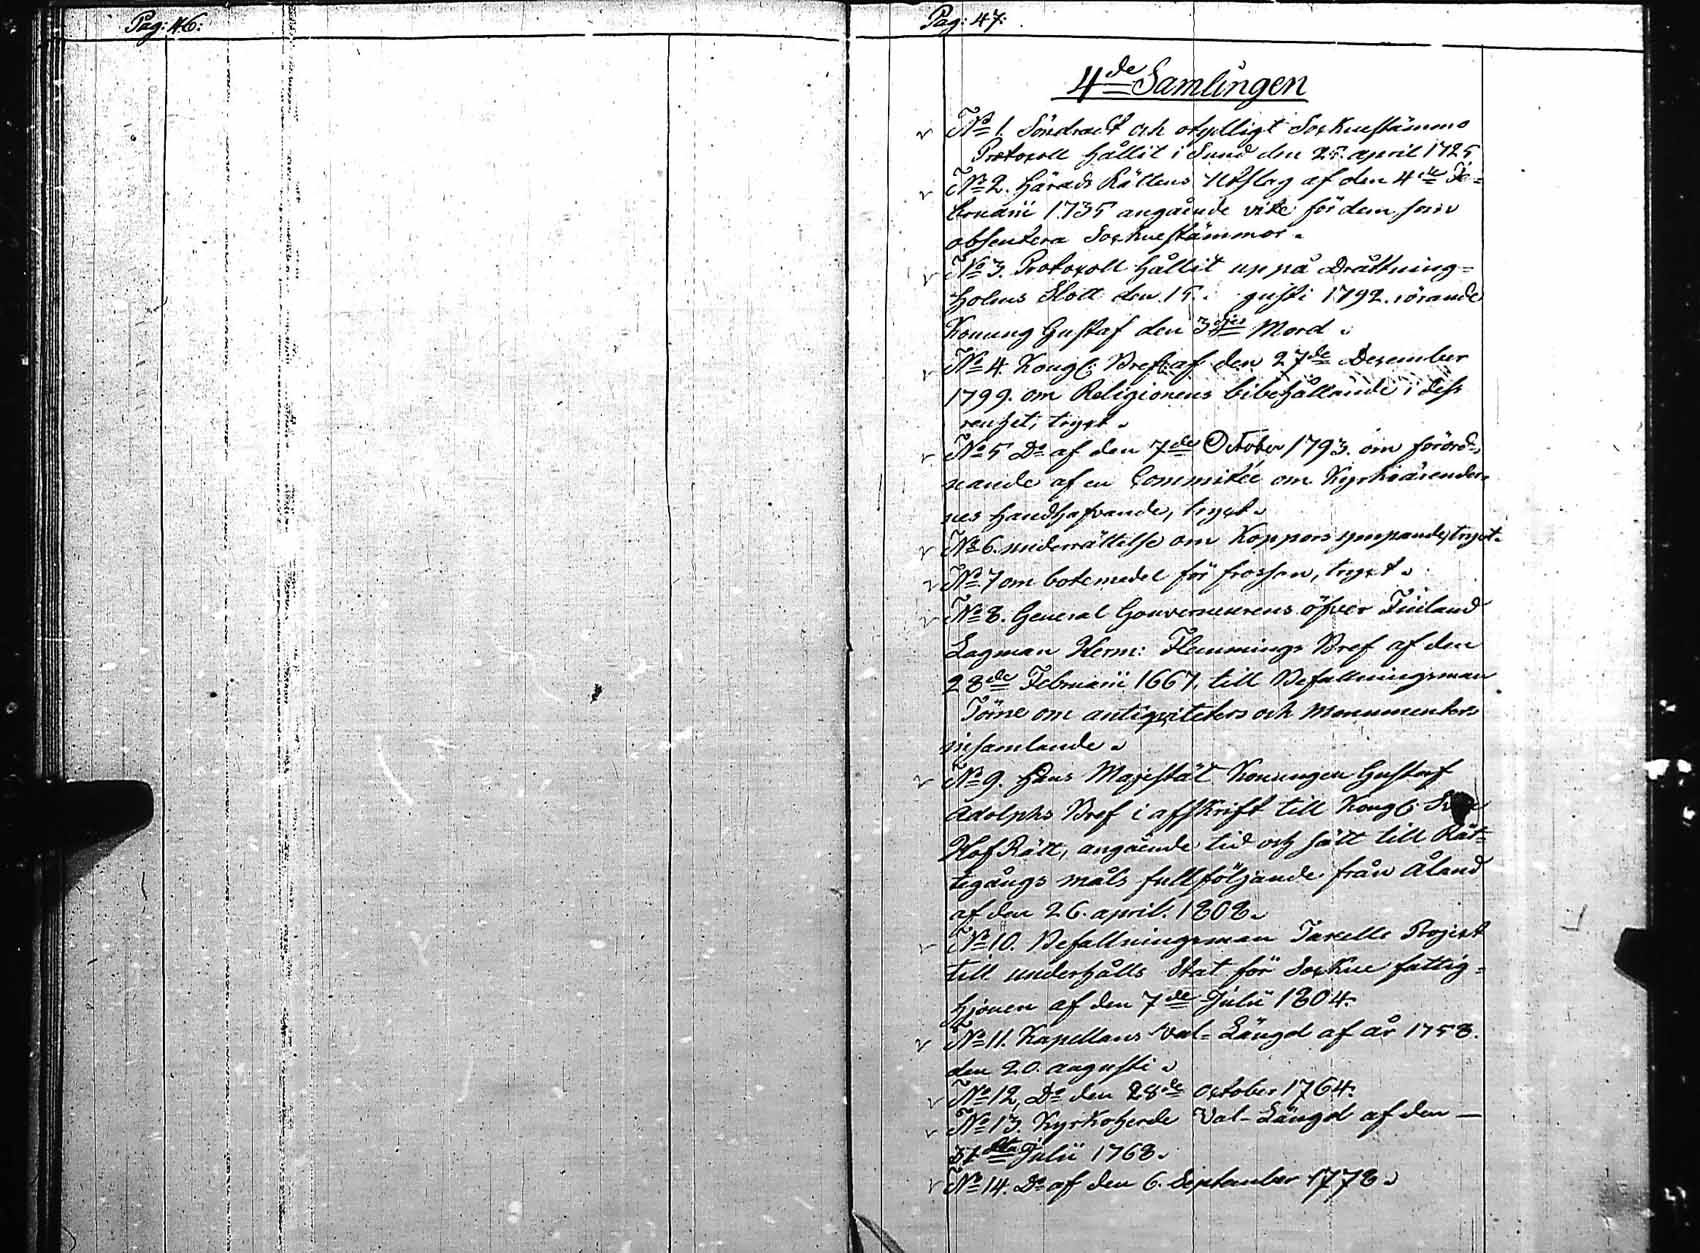 Pag: 46:
Pag: 47:
4de Samlingen
No 1. Söndradt och otydligt Socknestämmo
Protocoll hållit i Sund den 25. april 1725
No 2. Härads Rättens Utslag af den 4de Fe=
bruarii 1735 angående vite för dem som
absentera Socknestämmor.
No 3. Protocoll hållit uppå Drottning=
holms Slott den 15. gusti 1792. rörande
Konung Gustaf den 3djes Mord.
No 4. Kongl: Bref af den 27de December
1799. om Religionens bibehållande i dess
renhet, tryct.
No 5 Do af den 7de October 1793. om förord=
nande af en Committée om Kyrkoärender=
nes handhafvande, tryct.
No 6. underrättelse om Koppors ympande, tryct.
No 7 om botemedel för frossan, tryct.
No 8. General Gouverneurens öfver Finland
Lagman Herm: Flemmings Bref af den
28de Februarii 1667. till Befallningsman
Törne om antiqviteters och Monumenters
insamlande.
No 9. Hans Majestät Konungen Gustaf
Adolphs Bref i afskrift till Kongl:
Hof Rätt, angående tid och sätt till Rät=
tegångs måls fullföljande från Åland
af den 26. april. 1808.
No 10. Befallningsman Taxells Project
till underhålls Stat för Sockne fattig=
hjonen af den 7de Julii 1804.
No 11. Kapellans Val= Längd af år 1758.
den 20. augusti.
No 12. Do den 28de October 1764.
No 13. Kyrkoherde Val- Längd af den —
31sta Julii 1768.
No 14. Do af den 6. September 1778.